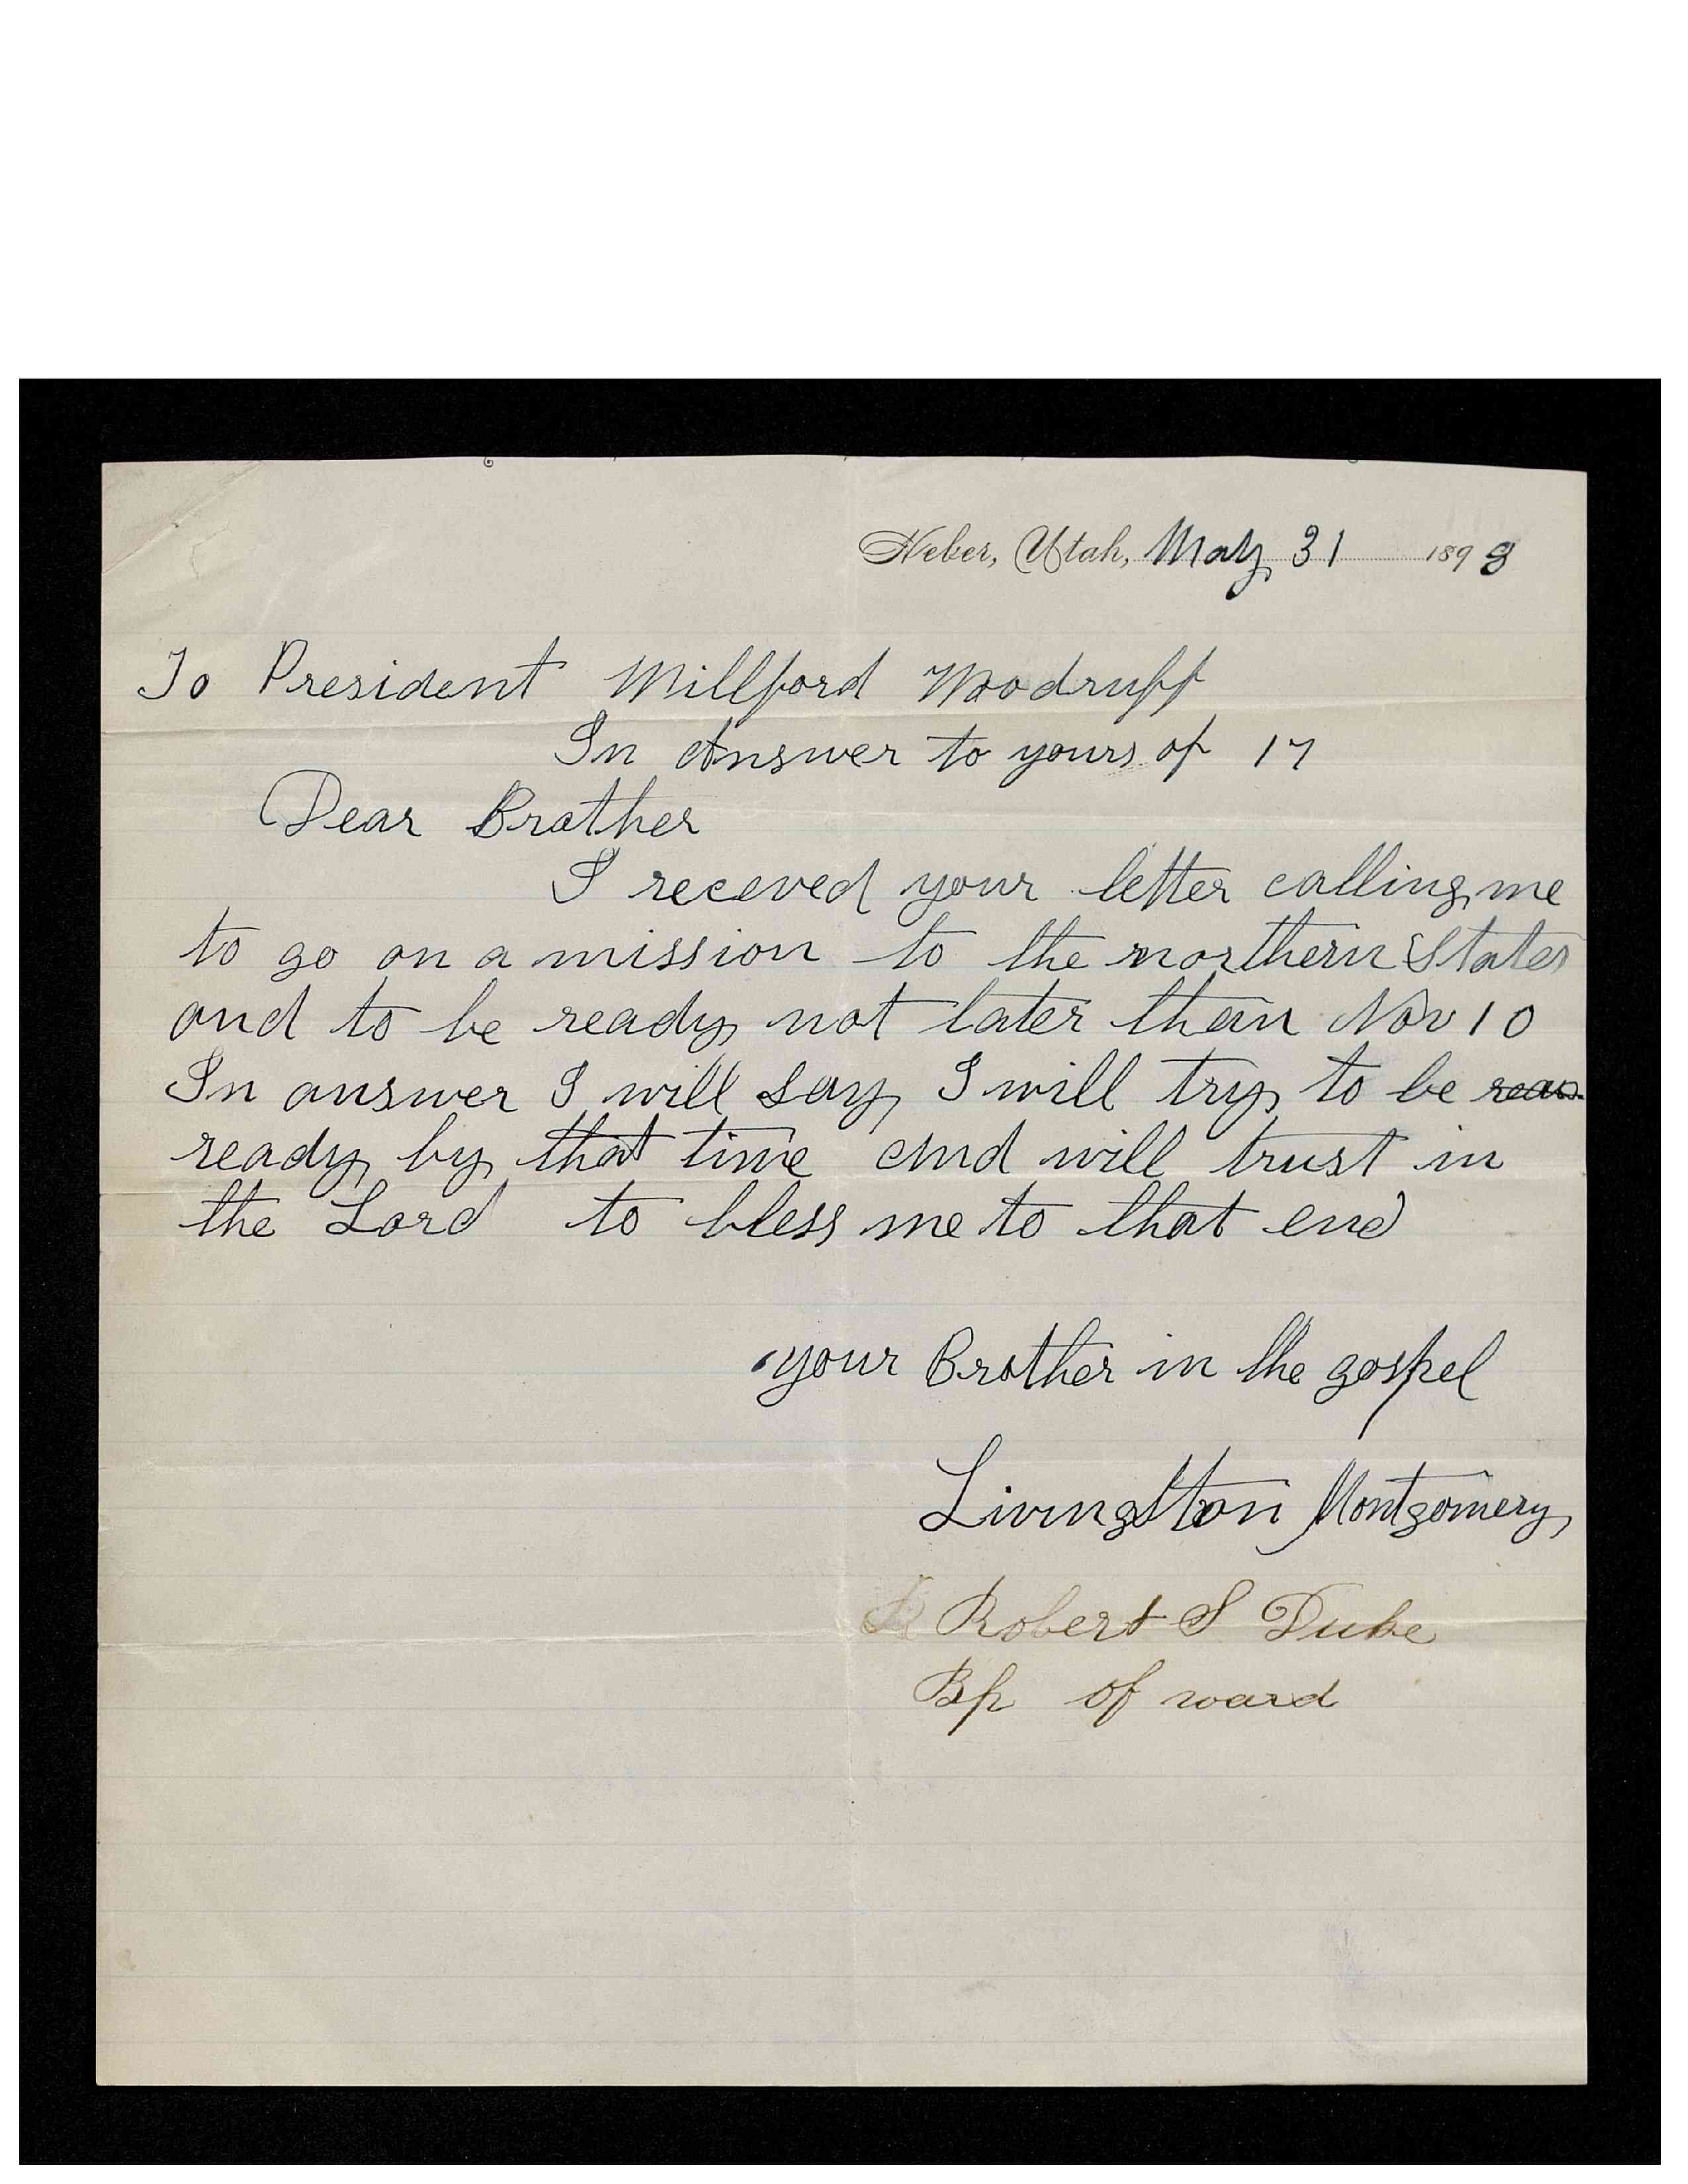 Heber, Utah, May 31 1898
To President Millford Woodruff
In Answer to yours of 17
Dear Brother
I receved your letter calling me
to go on a mission to the northern States
and to be ready not later than Nov 10
In answer I will say I will try to be
ready by that time and will trust in
the Lord to bless me to that end
your Brother in the gospel
Livingston Montgomery
Robert S Duke
Bp of ward